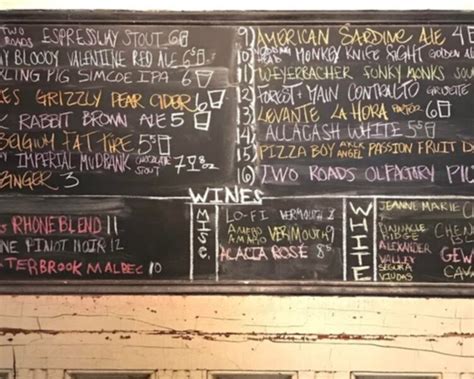 TWO ROADS ESPRESSWAY STOUT 6
BLOODY VALENTINE RED ALE 6
LING PIG SIMCOE IPA 6
ES GRIZZLY PEAR CIDER 6
RABBIT BROWN ALE 5
BELGIUM FAT TIRE 5
IMPERIAL MUDBANK CHOCOLATE STOUT 7 8oz
ZINGER 3
9) AMERICAN SARDINE ALE 4
10) MONKEY KNIFE FIGHT GOLDEN
11) WEYERBACHER FUNKY MONKS
12) FOREST+MAIN CONTROLTO GRISETTE
13) LEVANTE LA HORA 6
14) ALLAGASH WHITE 5
15) PIZZA BOY ANGEL PASSION FRUIT
16) TWO ROADS OLFACTORY
WINES
RHONE BLEND 11
PINOT NOIR 12
TERBROOK MALBEC 10
MISC.
LO-FI VERMOUTH
AMARO VERMOUTH
ACACIA ROSÉ 8
WHITE
JEANNE MARIE
PINNACLE RIDGE
ALEXANDER VALLEY GEW
SEGURA VIUDAS CAV